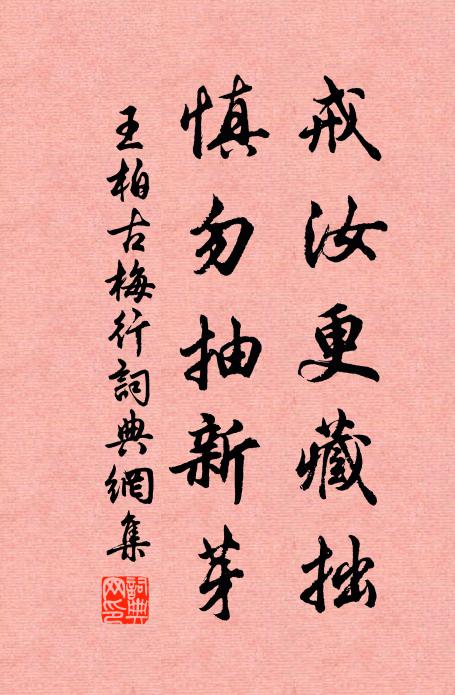 戒汝更藏拙
慎勿抽新芽
王柏古梅行詞典網集
詞典網印